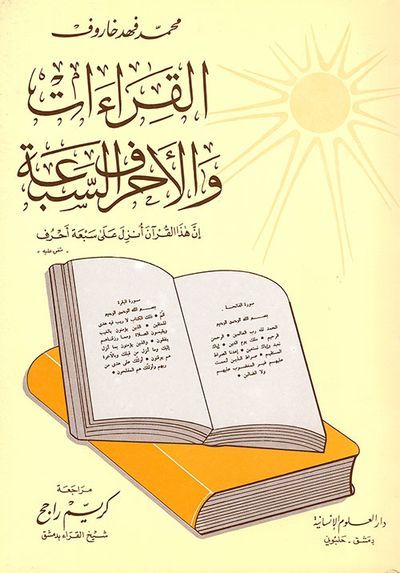 محمد فهد خاروف
القراءات
والأحرف السبعة
إن هذا القرآن أنزل على سبعة أحرف
متفق عليه
سورة الفاتحة
بسم الله الرحمن الرحيم
الحمد لله رب العالمين • الرحمن
الرحيم • ملك يوم الدين • إياك
نعبد وإياك نستعين • إهدنا الصراط
المستقيم • صراط الذين أنعمت
عليهم غير المغضوب عليهم
ولا الضالين •
سورة البقرة
بسم الله الرحمن الرحيم
الم • ذلك الكتاب لا ريب فيه هدى
للمتقين • الذين يؤمنون بالغيب
ويقيمون الصلاة ومما رزقناهم
ينفقون • والذين يؤمنون بما أنزل
إليك وما أنزل من قبلك وبالآخرة
هم يوقنون • أولئك على هدى من
ربهم وأولئك هم المفلحون •
مراجعة
كريم راجح
شيخ القراء بدمشق
دار العلوم الإنسانية
دمشق - حلبوني